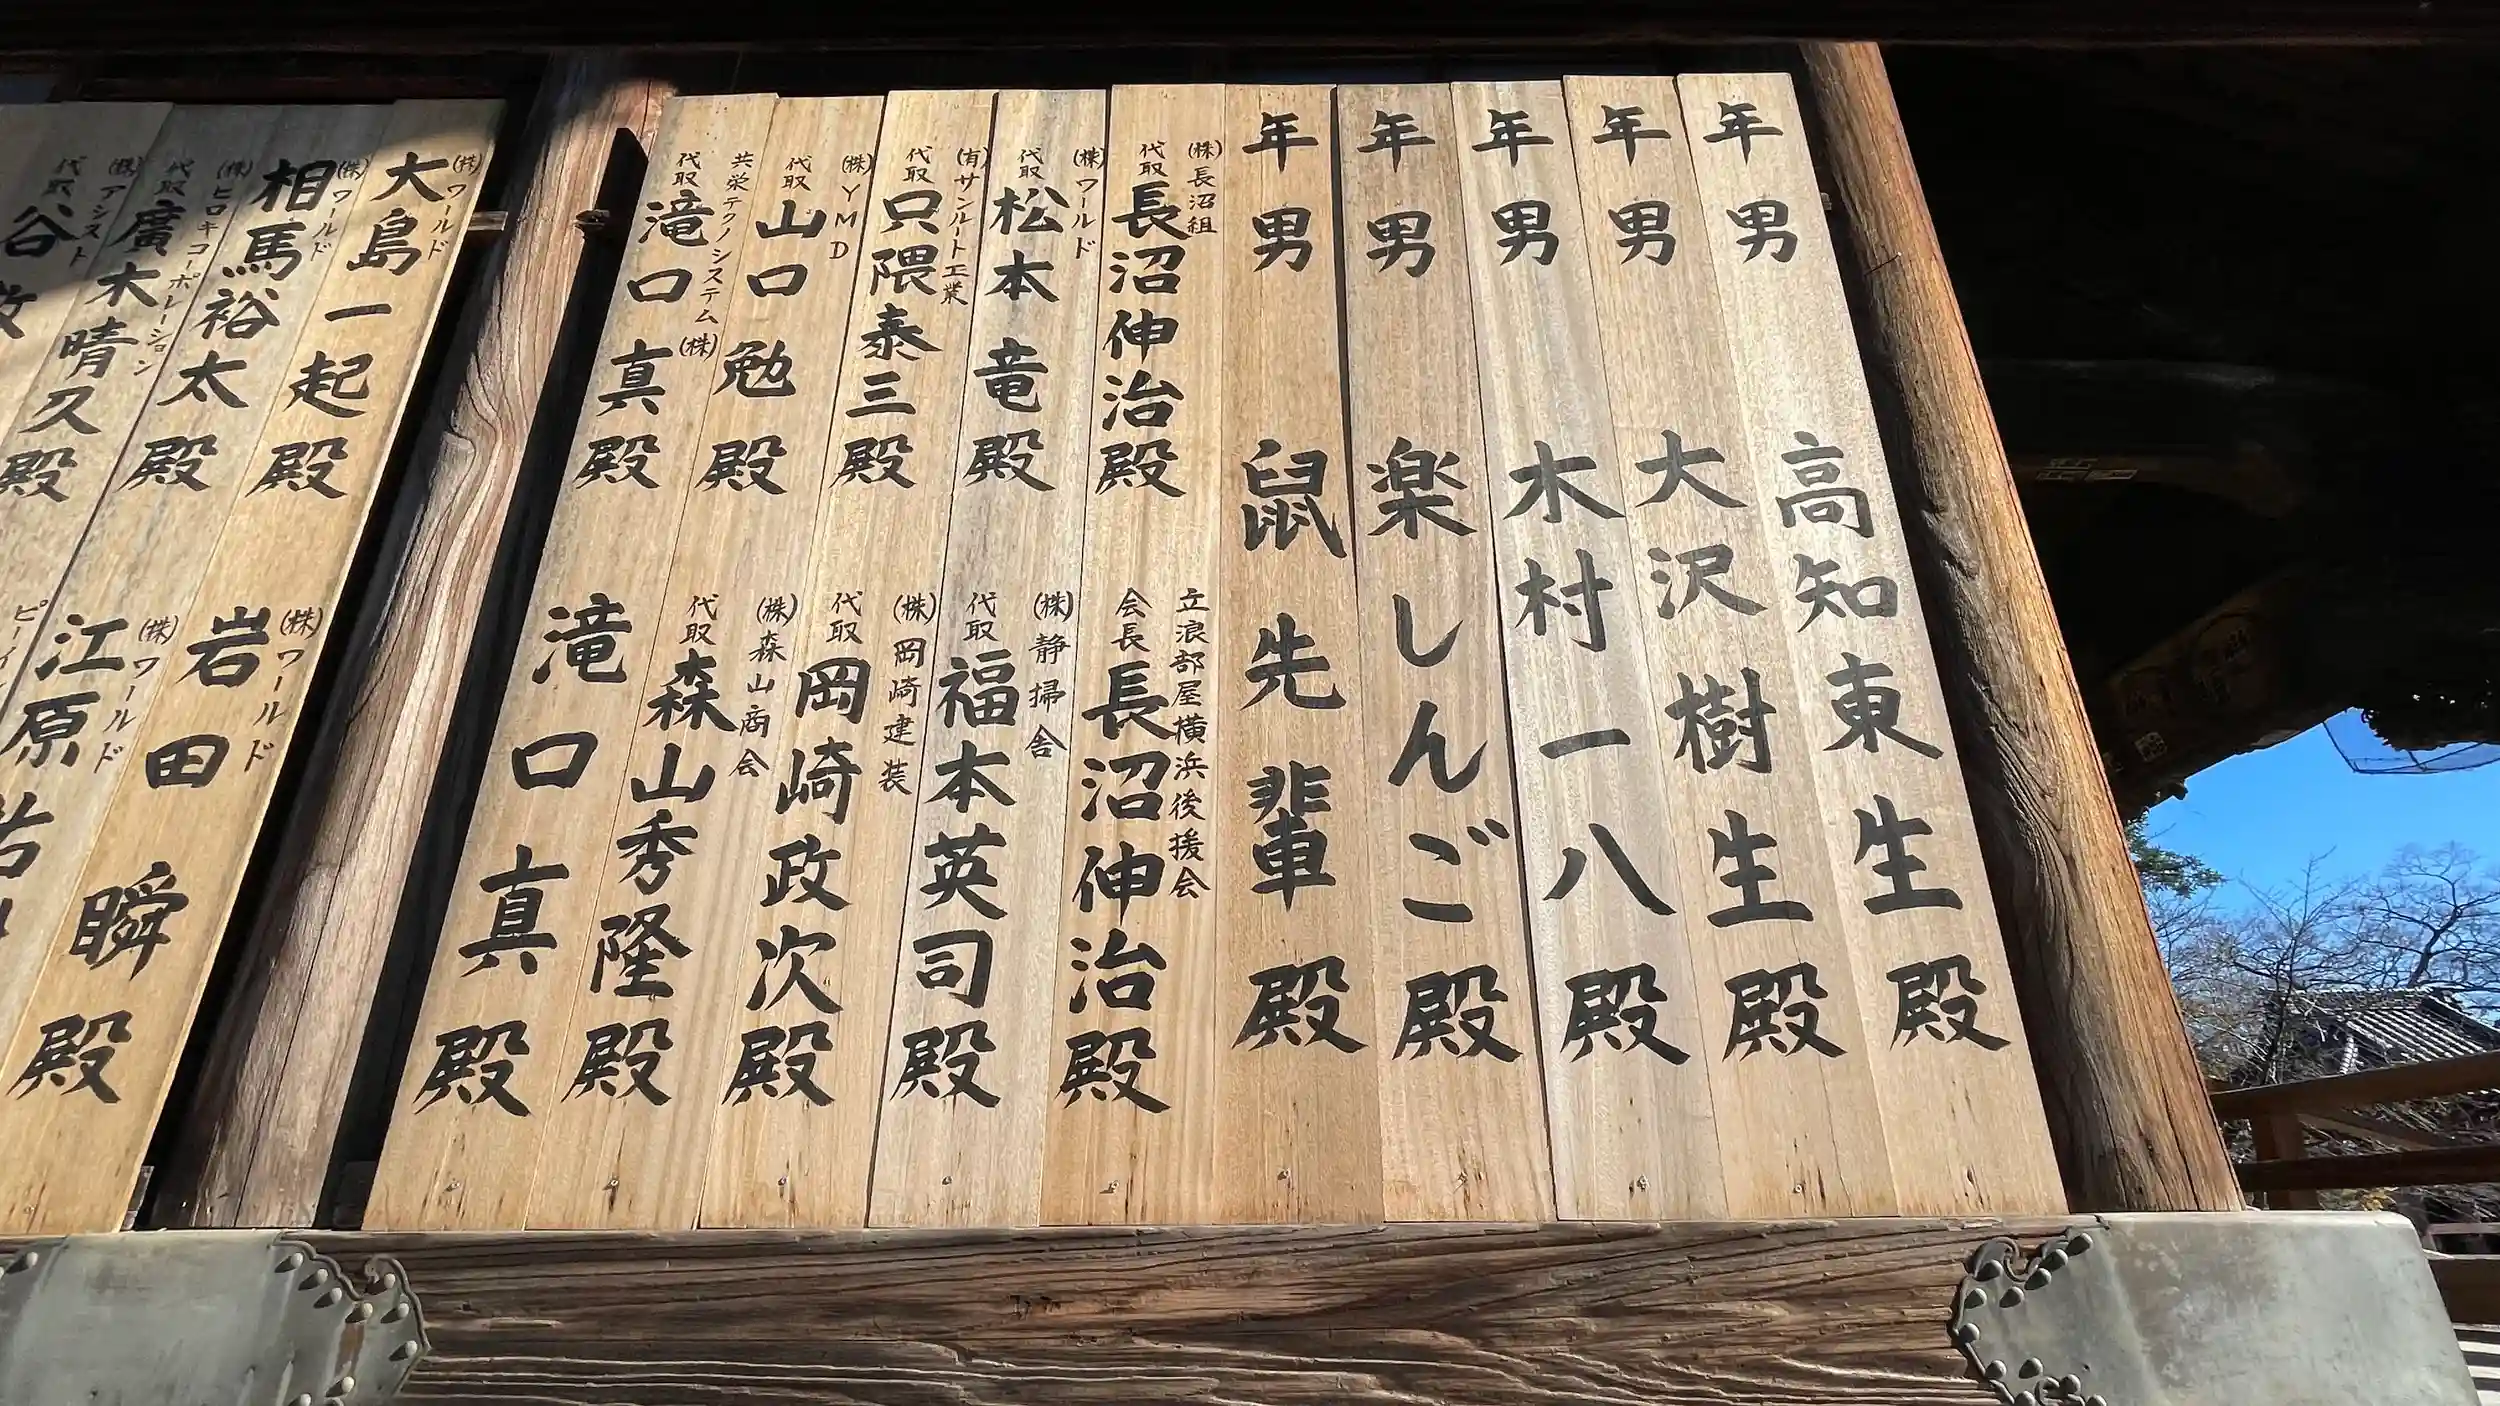 年男 高知東生殿
年男 大沢樹生殿
年男 木村一八殿
年男 楽しんご殿
年男 鼠先輩殿
(株)長沼組
代取 長沼伸治殿
立浪部屋横浜後援会
会長 長沼伸治殿
(株)ワールド
代取 松本竜殿
(株)静掃舎
代取 福本英司殿
(有)サンルート工業
代取 只隈泰三殿
(株)岡崎建装
代取 岡崎政次殿
(株)YMD
代取 山口勉殿
(株)森山商会
代取 森山秀隆殿
共栄テクノシステム(株)
代取 滝口真殿
滝口真殿
(株)ワールド
大島一起殿
(株)ワールド
岩田瞬殿
(株)ワールド
相馬裕太殿
(株)ワールド
江原
(株)ヒロキコーポレーション
代取 廣木晴久殿
(株)アシスト
代取 谷